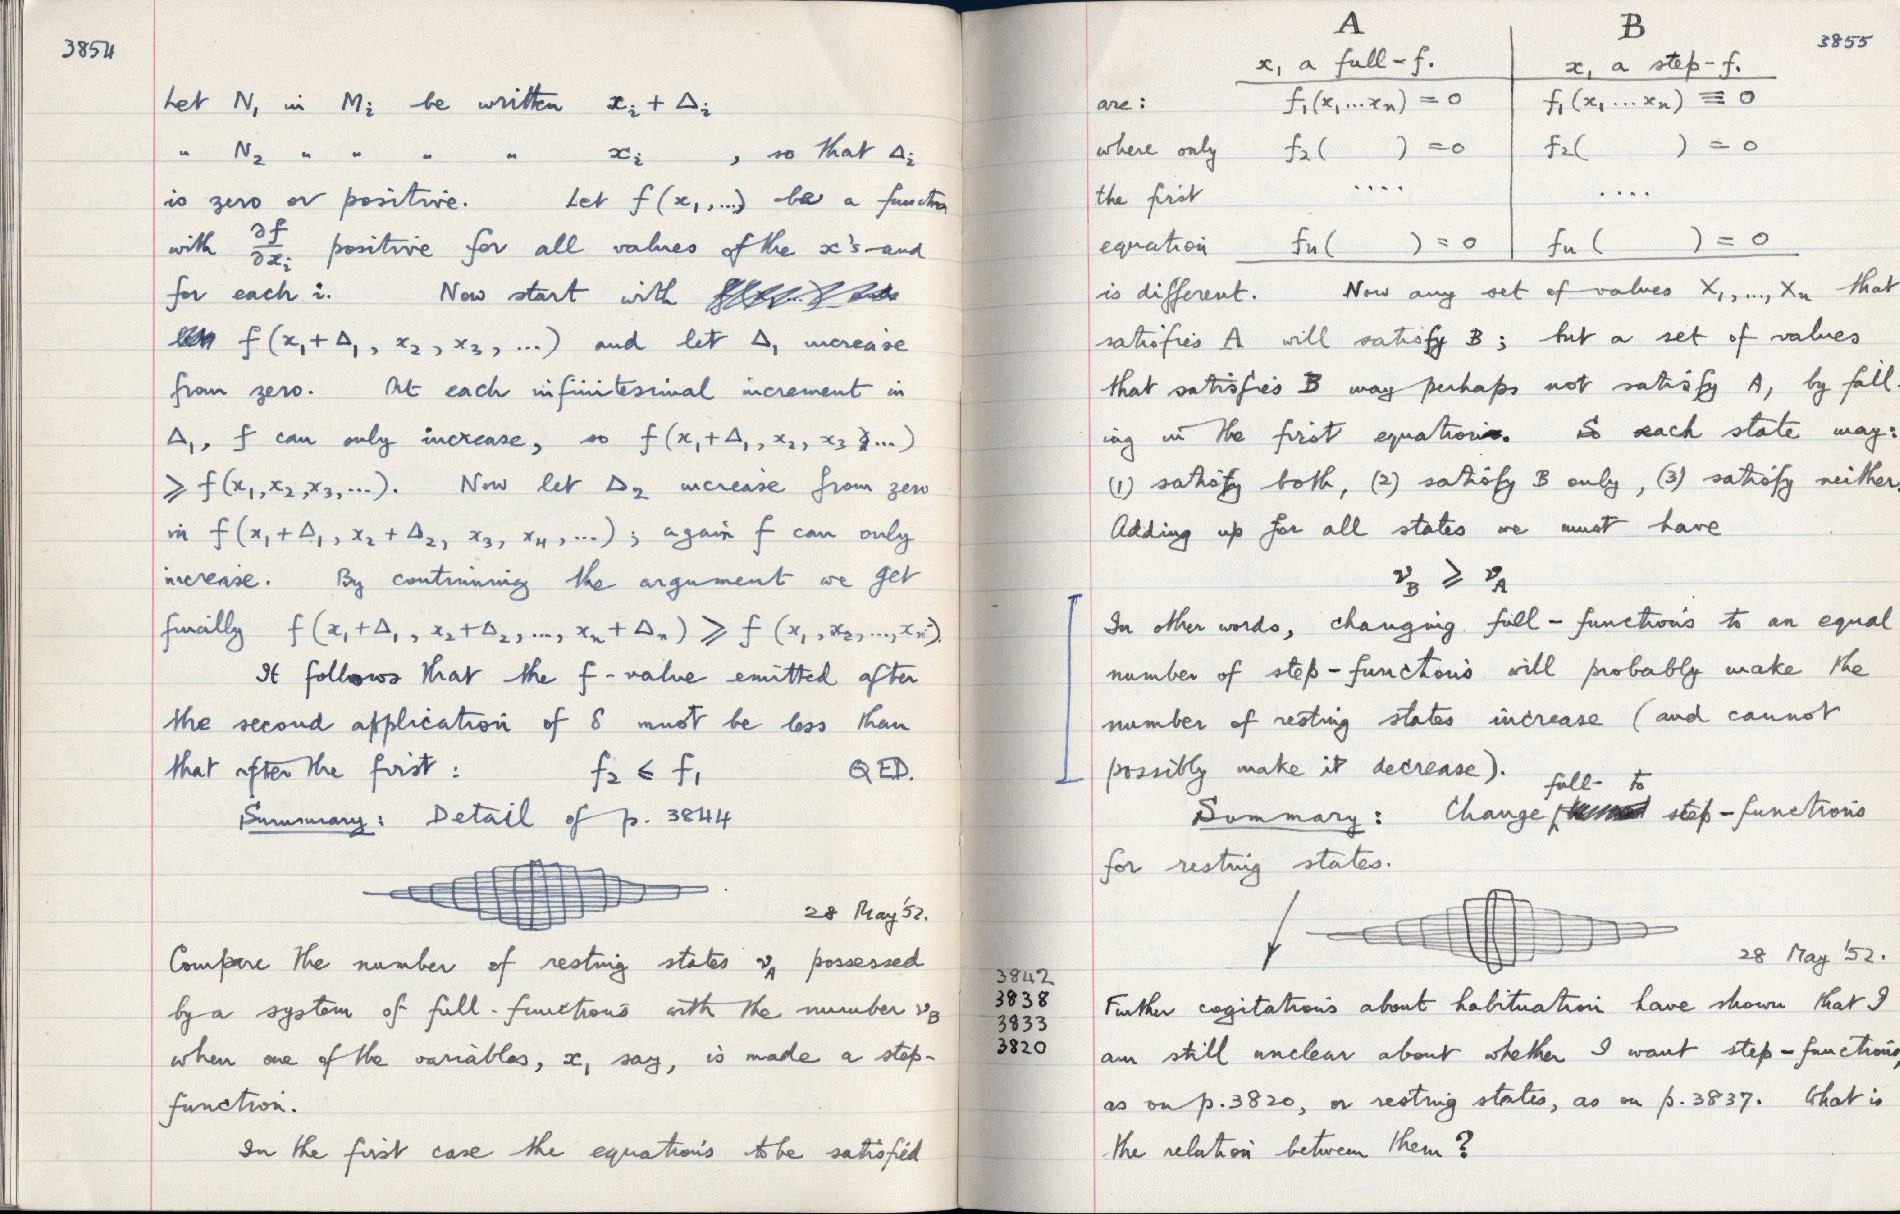 3854
Let N₁ in Mᵢ be written xᵢ + Δᵢ
" N₂ " " " " xᵢ , so that Δᵢ
is zero or positive. Let f(x₁,...) be a function
with ∂f/∂xᵢ positive for all values of the x's and
for each i. Now start with
f(x₁+Δ₁, x₂, x₃, ...) and let Δ₁ increase
from zero. At each infinitesimal increment in
Δ₁, f can only increase, so f(x₁+Δ₁, x₂, x₃, ...)
⩾ f(x₁,x₂,x₃,...). Now let Δ₂ increase from zero
in f(x₁+Δ₁, x₂+Δ₂, x₃, x₄, ...); again f can only
increase. By continuing the argument we get
finally f(x₁+Δ₁, x₂+Δ₂, ..., xₙ+Δₙ) ⩾ f(x₁, x₂, ..., xₙ).
It follows that the f-value emitted after
the second application of δ must be less than
that after the first: f₂ ⩽ f₁ QED.
Summary: Detail of p. 3844
28 May '52.
Compare the number of resting states ν_A possessed
by a system of full-functions with the number ν_B
when one of the variables, x₁ say, is made a step-
function.
In the first case the equations to be satisfied
3855
A B
x₁ a full-f. x₁ a step-f.
are: f₁(x₁...xₙ) = 0 f₁(x₁...xₙ) ≡ 0
where only f₂( ) = 0 f₂( ) = 0
the first .... ....
equation fₙ( ) = 0 fₙ( ) = 0
is different. Now any set of values X₁,...,Xₙ that
satisfies A will satisfy B; but a set of values
that satisfies B may perhaps not satisfy A, by fail-
ing in the first equation. So each state may:
(1) satisfy both, (2) satisfy B only, (3) satisfy neither.
Adding up for all states we must have
ν_B ⩾ ν_A
In other words, changing full-functions to an equal
number of step-functions will probably make the
number of resting states increase (and cannot
possibly make it decrease).
full- to
Summary: Change step-functions
for resting states.
28 May '52.
3842
3838
3833
3820
Further cogitations about habituation have shown that I
am still unclear about whether I want step-functions,
as on p.3820, or resting states, as on p.3837. What is
the relation between them?